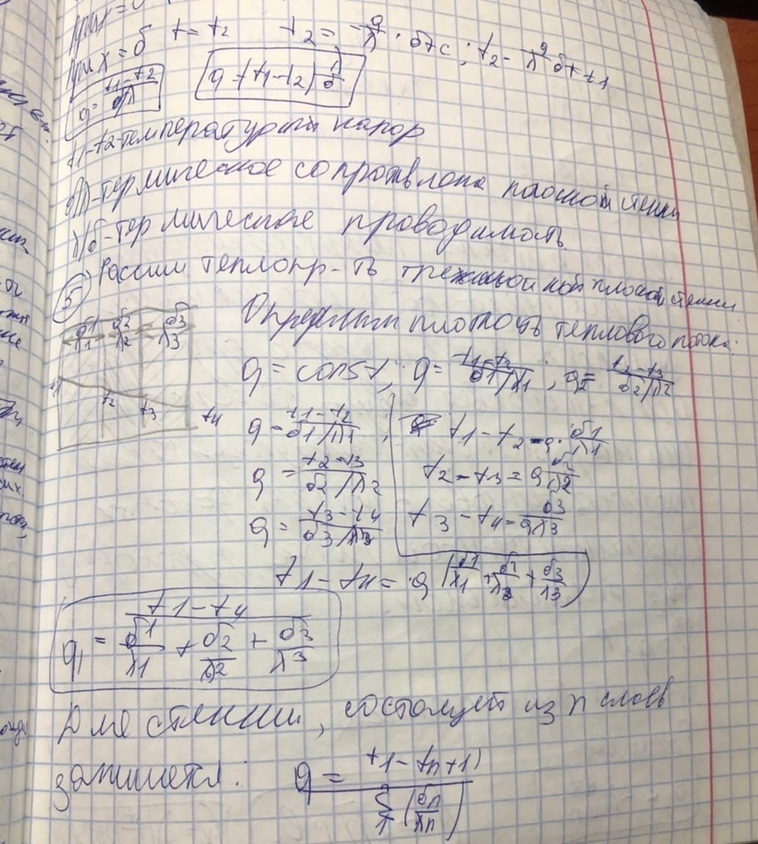 при x = δ t = t2 t2 = -q/λ · δ + c ; t2 = -q/λ δ + t1
q = (t1-t2)/(δ/λ) q = (t1-t2) λ/δ
t1-t2 - температурный напор
δ/λ - термическое сопротивление плоской стенки
λ/δ - термическая проводимость
5 Рассмм теплопр-ть трехслойной плоской стенки
δ1/λ1 δ2/λ2 δ3/λ3
t2 t3 t4
Определим плотность теплового потока:
q = const ; q = (t1-t2)/(δ1/λ1) ; q = (t2-t3)/(δ2/λ2)
q = (t1-t2)/(δ1/λ1) ; t1-t2 = q · δ1/λ1
q = (t2-t3)/(δ2/λ2) t2-t3 = q δ2/λ2
q = (t3-t4)/(δ3/λ3) t3-t4 = q δ3/λ3
t1-t4 = q (δ1/λ1 + δ2/λ2 + δ3/λ3)
q = (t1-t4)/(δ1/λ1 + δ2/λ2 + δ3/λ3)
Для стенки, состоящей из n слоев
запишется: q = (t1-tn+1)/(Σ(δn/λn))